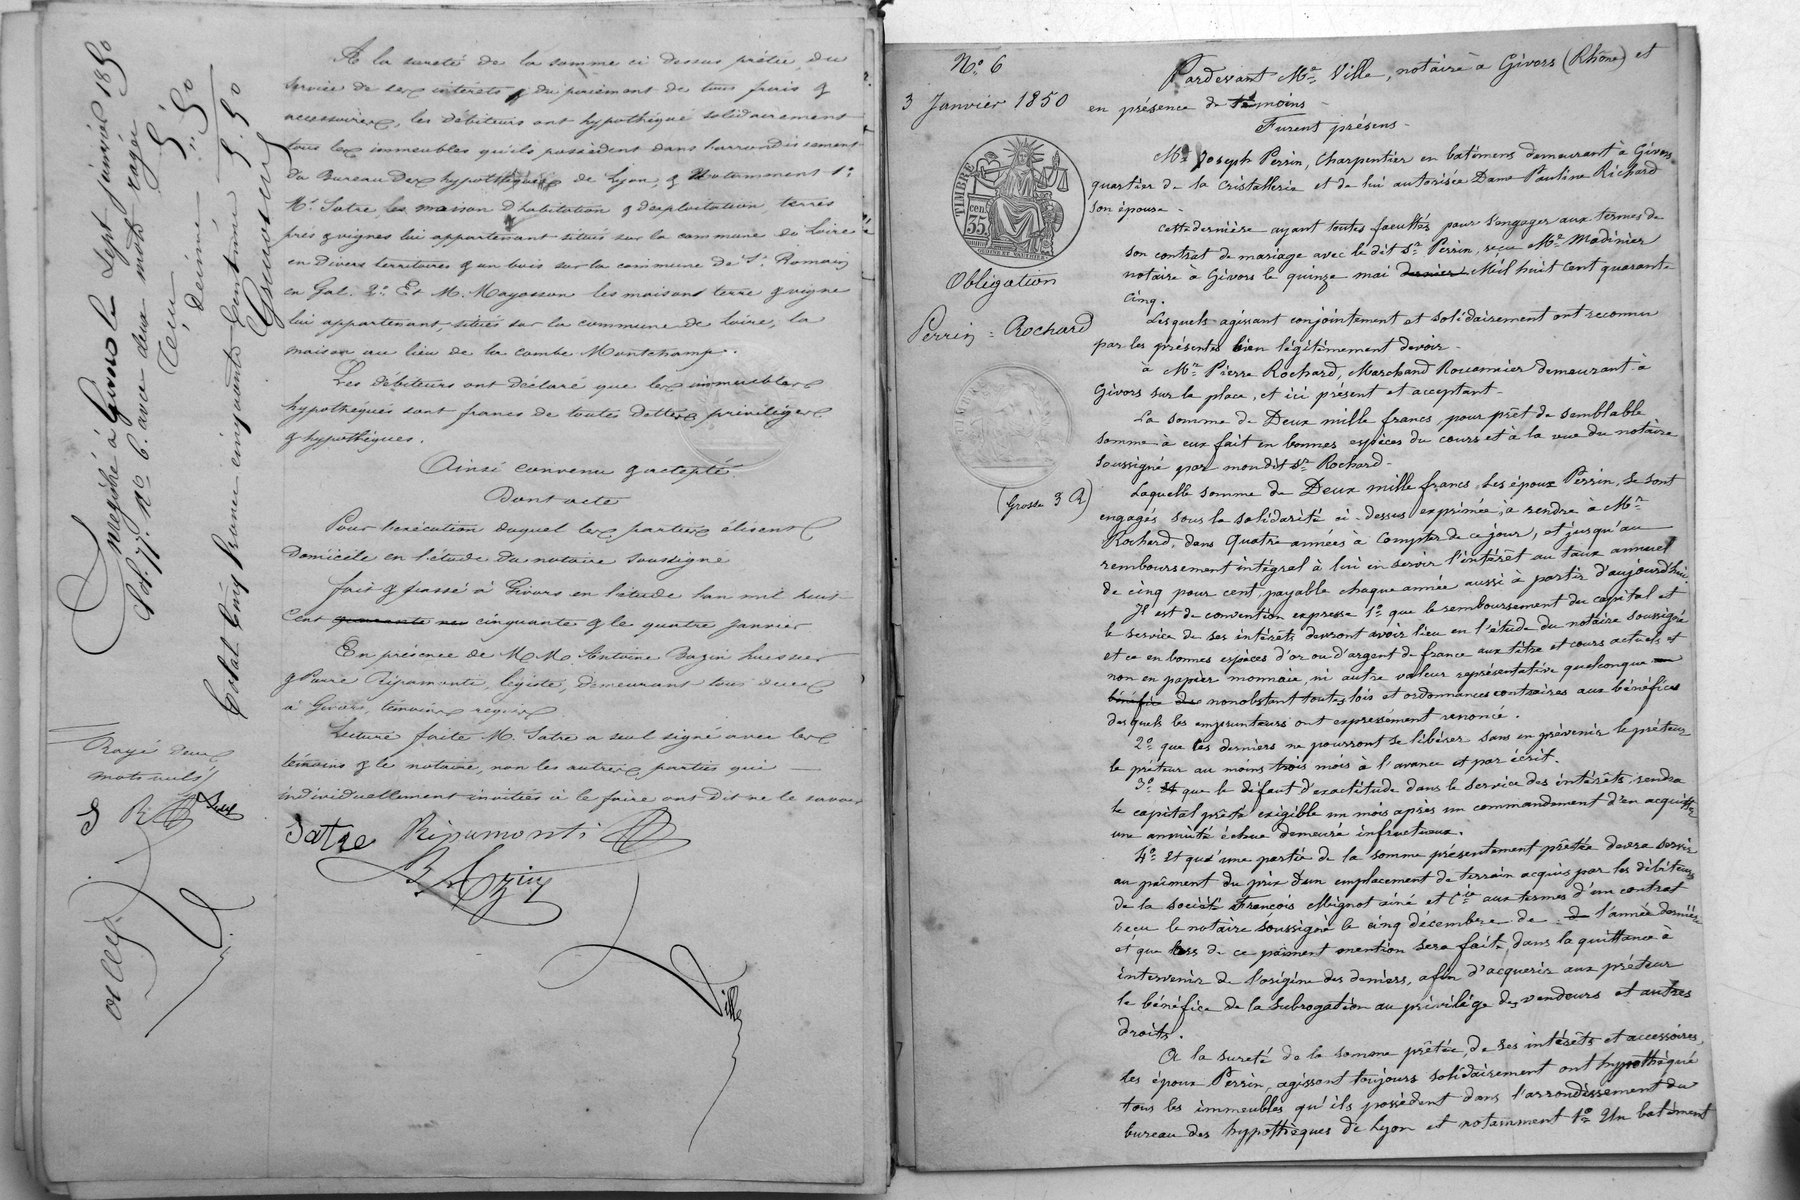 A la sureté de la somme ci dessus prêtée du
service de ses intérêts & du paiement de tous frais &
accessoires, les débiteurs ont hypothéqué solidairement
tous les immeubles qu'ils possèdent dans l'arrondissement
du Bureau des hypothèques de Lyon, & Notamment 1º
Mr. Satre, les maison d'habitation & d'exploitation, terres
prés & vignes lui appartenant situés sur la commune de Loire
en divers territoires & un bois sur la commune de St. Romain
en Gal. 2º Et M. Mayosson les maisons terre & vigne
lui appartenant, situés sur la commune de Loire, la
maison au lieu de la combe Montchamp.
Les débiteurs ont déclaré que les immeubles
hypothéqués sont francs de toutes dettes privilèges
& hypothèques.
Ainsi convenu & accepté.
Dont acte
Pour l'exécution duquel les parties élisent
domicile en l'étude du notaire soussigné
fait & passé à Givors en l'étude l'an mil huit
Cent quarante neu cinquante & le quatre Janvier
En présence de M.M. Antoine Bazin huissier
& Pierre Ripamonti, légiste, demeurant tous deux
à Givors, témoins requis
Lecture faite M. Satre a seul signé avec les
témoins & le notaire, non les autres parties qui
individuellement invitées à le faire ont dit ne le savoir
Satre Ripamonti
Bazin
Ville
Enregistré à Givors le sept janvier 1850
fol. 17. Nº 6. avec deux mots rayés
Reçu 5
décime " 50
Total Cinq francs cinquante centimes 5.50
Rayé deux
mots nuls
S R
Nº 6
3 Janvier 1850
TIMBRE
35 cen.
Obligation
Perrin = Rochard
(Grosse 3 R)
Pardevant Me. Ville, notaire à Givors (Rhône) et
en présence de témoins
Furent présens
Mr. Joseph Perrin, Charpentier en batimens demeurant à Givors
quartier de la Cristallerie et de lui autorisée Dame Pauline Richard
son épouse
Cette dernière ayant toutes facultés pour s'engager aux termes de
son contrat de mariage avec le dit Sr. Perrin, reçu Me. Madinier
notaire à Givors le quinze mai dernier Mil huit cent quarante
Cinq.
Lesquels agissant conjointement et solidairement ont reconnu
par les présentes bien légitimement devoir
à Mr. Pierre Rochard, Marchand Rouennier demeurant à
Givors sur la place, et ici présent et acceptant
La somme de Deux mille francs pour prêt de semblable
somme à eux fait en bonnes espèces du cours et à la vue du notaire
soussigné par mondit Sr. Rochard
Laquelle somme de Deux mille francs les époux Perrin, se sont
engagés sous la solidarité ci-dessus exprimée, à rendre à Mr.
Rochard, dans quatre années à compter de ce jour, et jusqu'au
remboursement intégral à lui en servir l'intérêt au taux annuel
de cinq pour cent, payable chaque année aussi à partir d'aujourd'hui.
Il est de convention expresse 1º que le remboursement du capital et
le service de ses intérêts devront avoir lieu en l'étude du notaire soussigné
et ce en bonnes espèces d'or ou d'argent de france aux titre et cours actuels et
non en papier monnaie, ni autre valeur représentative quelconque
bénéfice des nonobstant toutes lois et ordonnances contraires aux bénéfices
desquels les emprunteurs ont expressément renoncé.
2º que les derniers ne pourront se libérer sans en prévenir le prêteur
le prêteur au moins trois mois à l'avance et par écrit.
3º Et que le défaut d'exactitude dans le service des intérêts rendra
le capital prêté exigible un mois après un commandement d'en acquitter
une annuité échue demeuré infructueux.
4º Et qu'une partie de la somme présentement prêtée devra servir
au paiment du prix d'un emplacement de terrain acquis par les débiteurs
de la société François Mignot ainé et Cie aux termes d'un contrat
reçu le notaire soussigné le cinq décembre de d l'année dernière
et que lors de ce paiment mention sera faite dans la quittance à
intervenir de l'origine des deniers, afin d'acquérir aux prêteur
le bénéfice de la subrogation au privilège des vendeurs et autres
droits.
A la sureté de la somme prêtée, de ses intérêts et accessoires,
les époux Perrin, agissant toujours solidairement ont hypothéqué
tous les immeubles qu'ils possèdent dans l'arrondissement du
bureau des hypothèques de Lyon et notamment 1º Un batiment